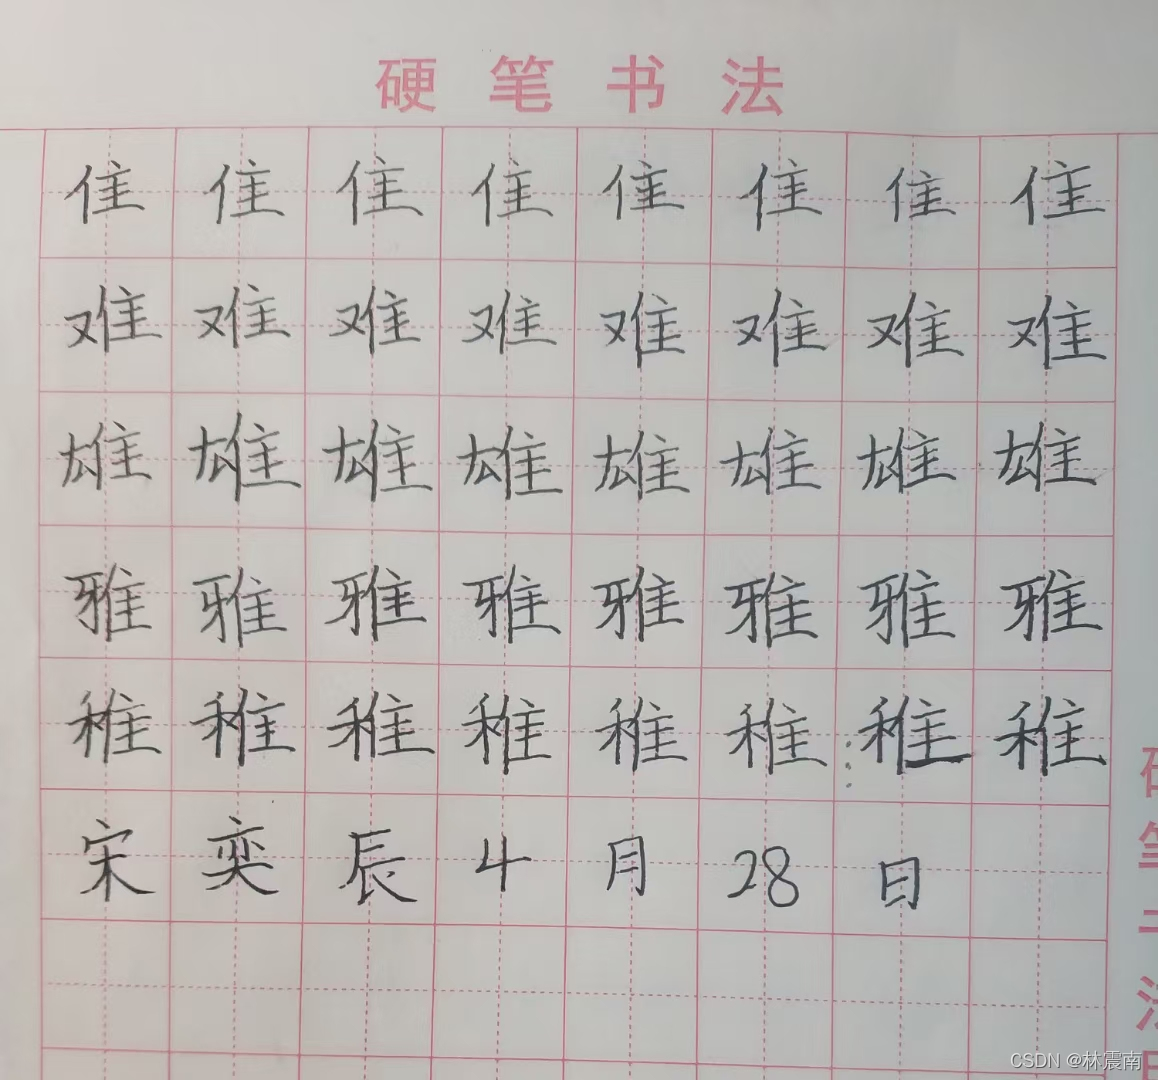 硬笔书法
隹隹隹隹隹隹隹隹
难难难难难难难难
雄雄雄雄雄雄雄雄
雅雅雅雅雅雅雅雅
稚稚稚稚稚稚稚稚
宋奕辰4月28日
硬笔书法
CSDN @林震南